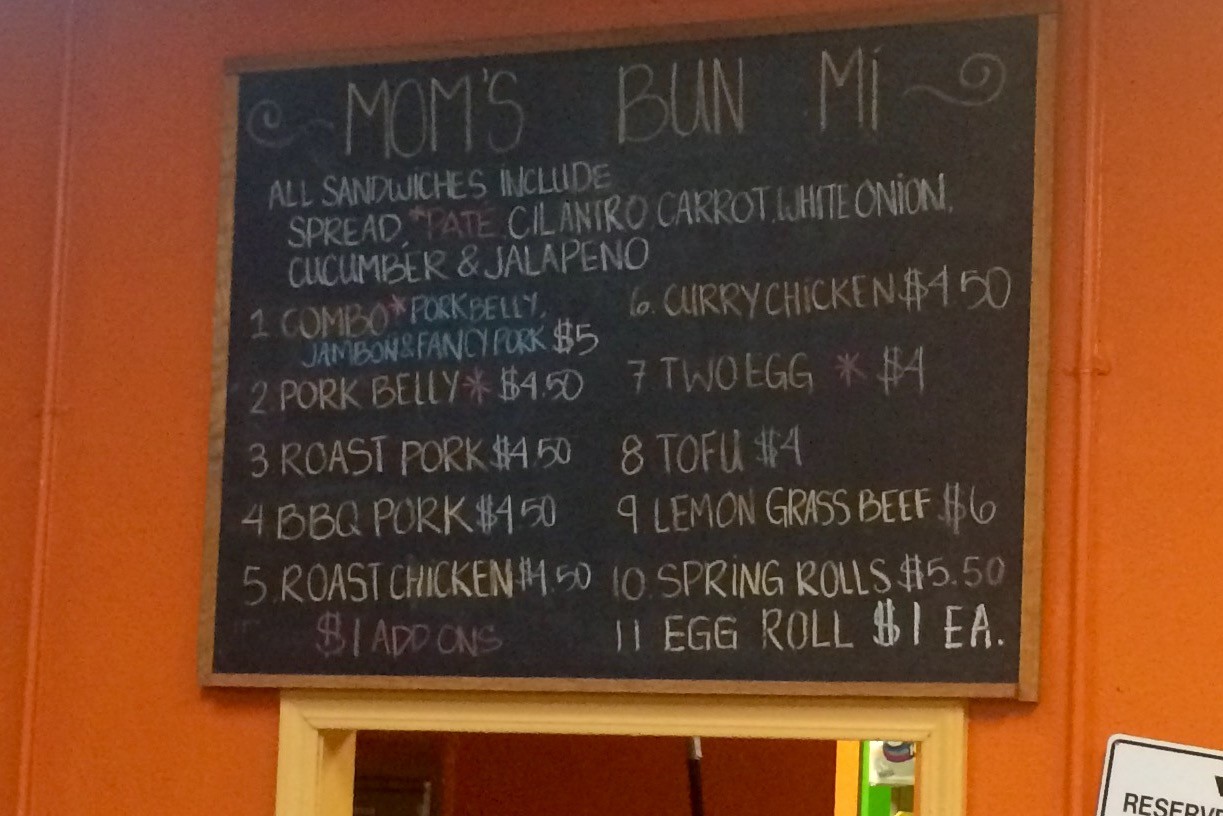 MOM'S BUN Mi
ALL SANDWICHES INCLUDE
SPREAD, *PATÉ, CILANTRO, CARROT, WHITE ONION,
CUCUMBER & JALAPENO
1 COMBO* PORK BELLY,
JAMBON & FANCY PORK $5
2. PORK BELLY* $4.50
3 ROAST PORK $4.50
4 BBQ PORK $4.50
5. ROAST CHICKEN $4.50
$1 ADD ONS
6. CURRY CHICKEN $4.50
7 TWO EGG * $4
8 TOFU $4
9 LEMON GRASS BEEF $6
10. SPRING ROLLS $5.50
11 EGG ROLL $1 EA.